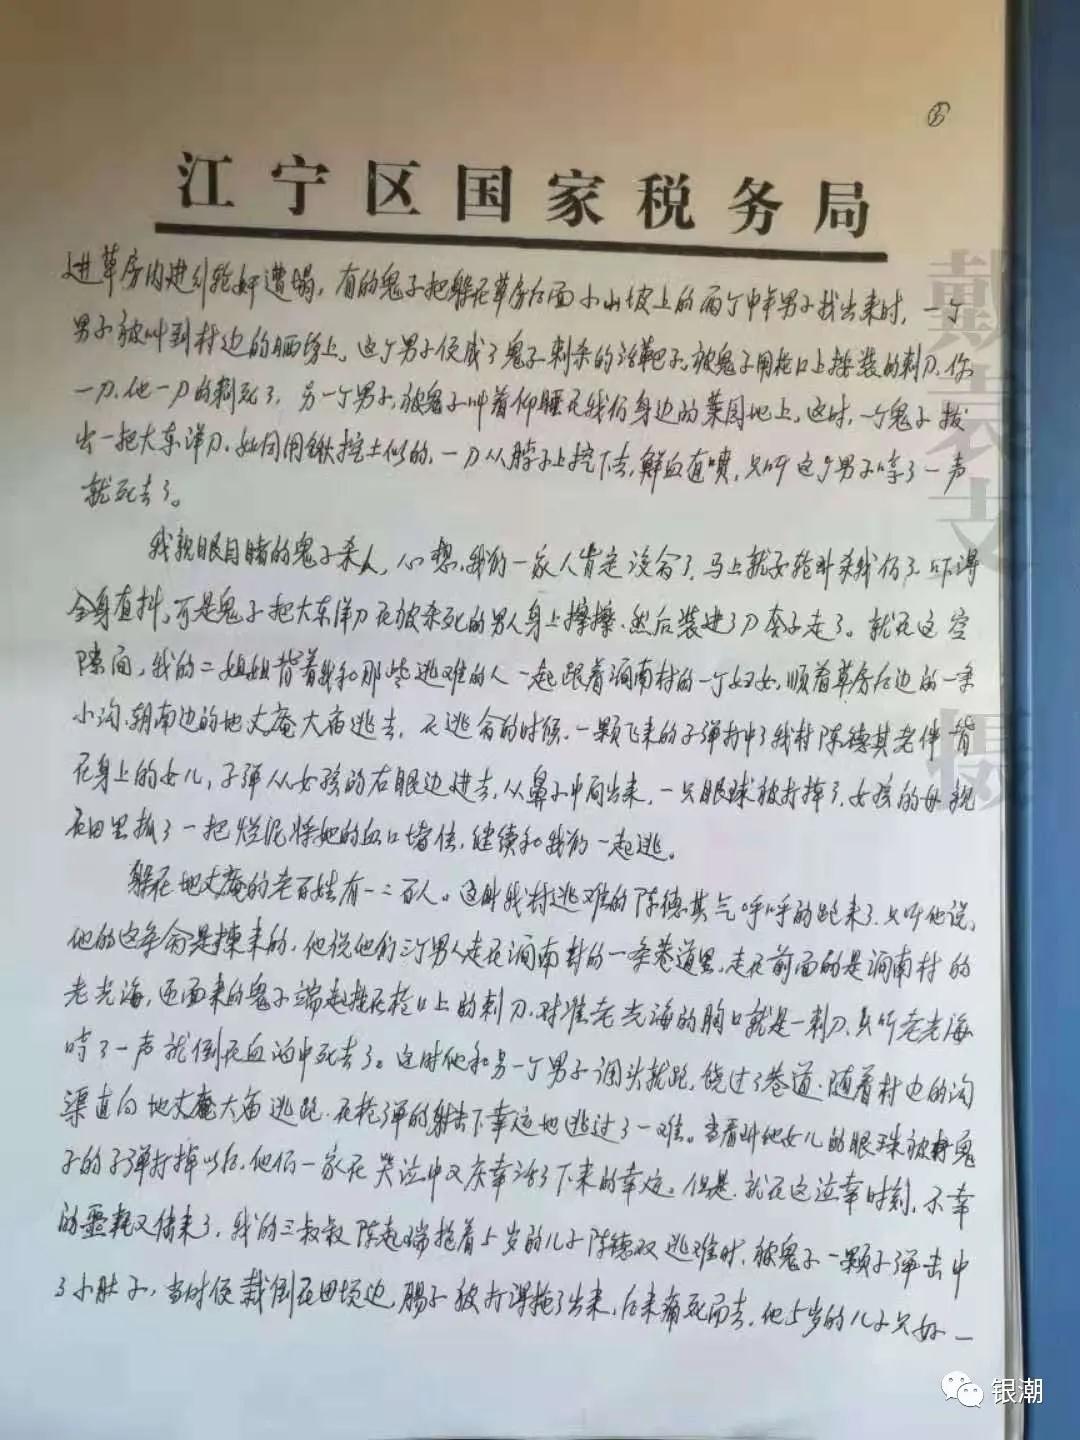 ⑤
江宁区国家税务局
进草房内进行轮奸遭蹋，有的鬼子把躲在草房后面小山坡上的两个中年男子找出来时，一个
男子被叫到村边的晒场上。这个男子便成了鬼子刺杀的活靶子，被鬼子用枪口上按装的刺刀，你
一刀，他一刀的刺死了，另一个男子，被鬼子叫着仰睡在我们身边的菜园地上，这时，一个鬼子拔
出一把大东洋刀，如同用锹挖土似的，一刀从脖子上挖下去，鲜血直喷，只听这个男子哼了一声
就死去了。
我亲眼目睹的鬼子杀人，心想，我们一家人肯定没命了，马上就要轮到杀我们了，吓得
全身直抖，可是鬼子把大东洋刀在被杀死的男人身上擦擦，然后装进了刀套子走了。就在这空
隙间，我的二姐姐背着我和那些逃难的人一起跟着涧南村的一个妇女，顺着草房后边的一条
小沟，朝南边的地丈庵大庙逃去，在逃命的时候，一颗飞来的子弹打中了我村陈德其老伴背
在身上的女儿，子弹从女孩的右眼边进去，从鼻子中间出来，一只眼球被打掉了，女孩的母亲
在田里抓了一把烂泥将她的血口堵住，继续和我们一起逃。
躲在地丈庵的老百姓有一二百人。这时我村逃难的陈德其气呼呼的跑来了，只听他说，
他的这条命是捡来的，他说他们三个男人走在涧南村的一条巷道里，走在前面的是涧南村的
老光海，迎面来的鬼子端起按在枪口上的刺刀，对准老光海的胸口就是一刺刀，只听老光海
哼了一声就倒在血泊中死去了。这时他和另一个男子调头就跑，绕过了巷道，随着村边的沟
渠直向地丈庵大庙逃跑，在枪弹的射击下幸运地逃过了一难。当看到他女儿的眼珠被鬼
子的子弹打掉以后，他们一家在哭泣中又庆幸活了下来的幸运。但是，就在这泣幸时刻，不幸
的噩耗又传来了，我的三叔叔陈起瑞抱着5岁的儿子陈德双逃难时，被鬼子一颗子弹击中
了小肚子，当时便栽倒在田埂边，肠子被打得拖了出来，后来痛死而去，他5岁的儿子只好一
戴袁支 摄
银潮